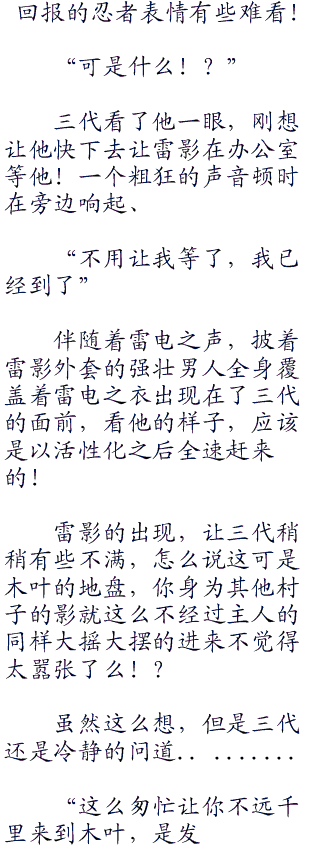 回报的忍者表情有些难看！
“可是什么！？”
三代看了他一眼，刚想
让他快下去让雷影在办公室
等他！一个粗狂的声音顿时
在旁边响起、
“不用让我等了，我已
经到了”
伴随着雷电之声，披着
雷影外套的强壮男人全身覆
盖着雷电之衣出现在了三代
的面前，看他的样子，应该
是以活性化之后全速赶来
的！
雷影的出现，让三代稍
稍有些不满，怎么说这可是
木叶的地盘，你身为其他村
子的影就这么不经过主人的
同样大摇大摆的进来不觉得
太嚣张了么！？
虽然这么想，但是三代
还是冷静的问道．．．．．．．．．
“这么匆忙让你不远千
里来到木叶，是发